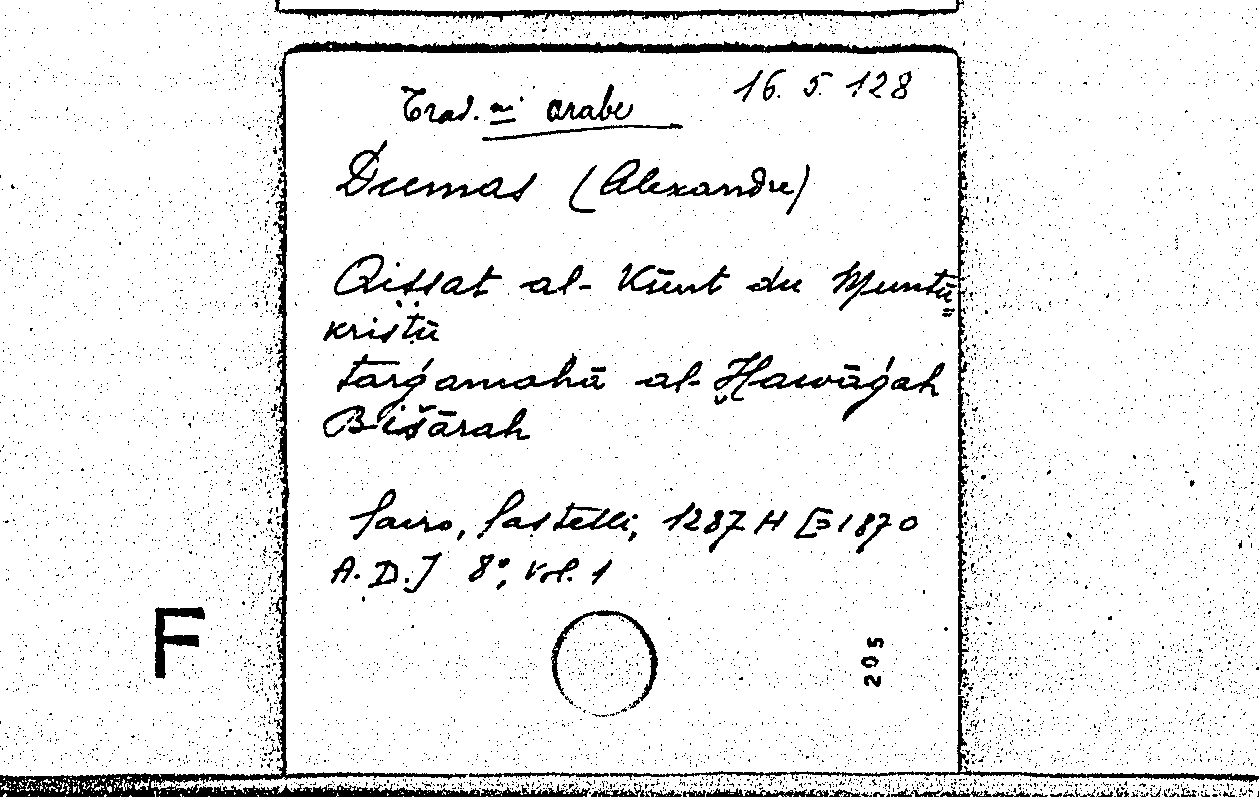 16. 5 128
Trad. en arabe
Dumas (Alexandre)
Qissat al-Kūnt du Muntū=
kristū
targamahā al-Ḫawāǧah
Bišārah
Cairo, Castelli, 1287 H [=1870
A.D.] 8°, vol. 1
F
205